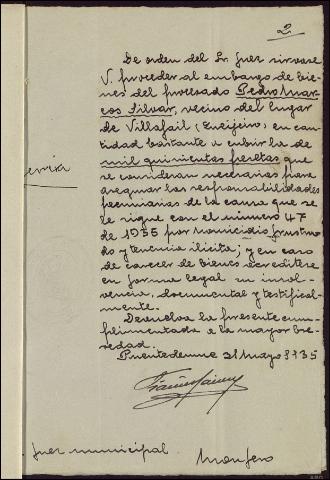 2
De orden del Sr. Juez sirvase
V. proceder al embargo de bie-
nes del procesado Pedro Mar-
cos Silvar, vecino del lugar
de Villafail, en can-
tidad bastante a cubrir la de
mil quinientas pesetas que
se consideran necesarias para
asegurar las responsabilidades
pecuniarias de la causa que se
le sigue con el número 47
de 1935 por homicidio frustra-
do y tenencia ilicita; y en caso
de carecer de bienes acreditese
en forma legal su insol-
vencia, documental y testifical-
mente.
Devuelva la presente cum-
plimentada a la mayor bre-
vedad.
Puentedeume 21 Mayo 1935
Juez municipal Monfero